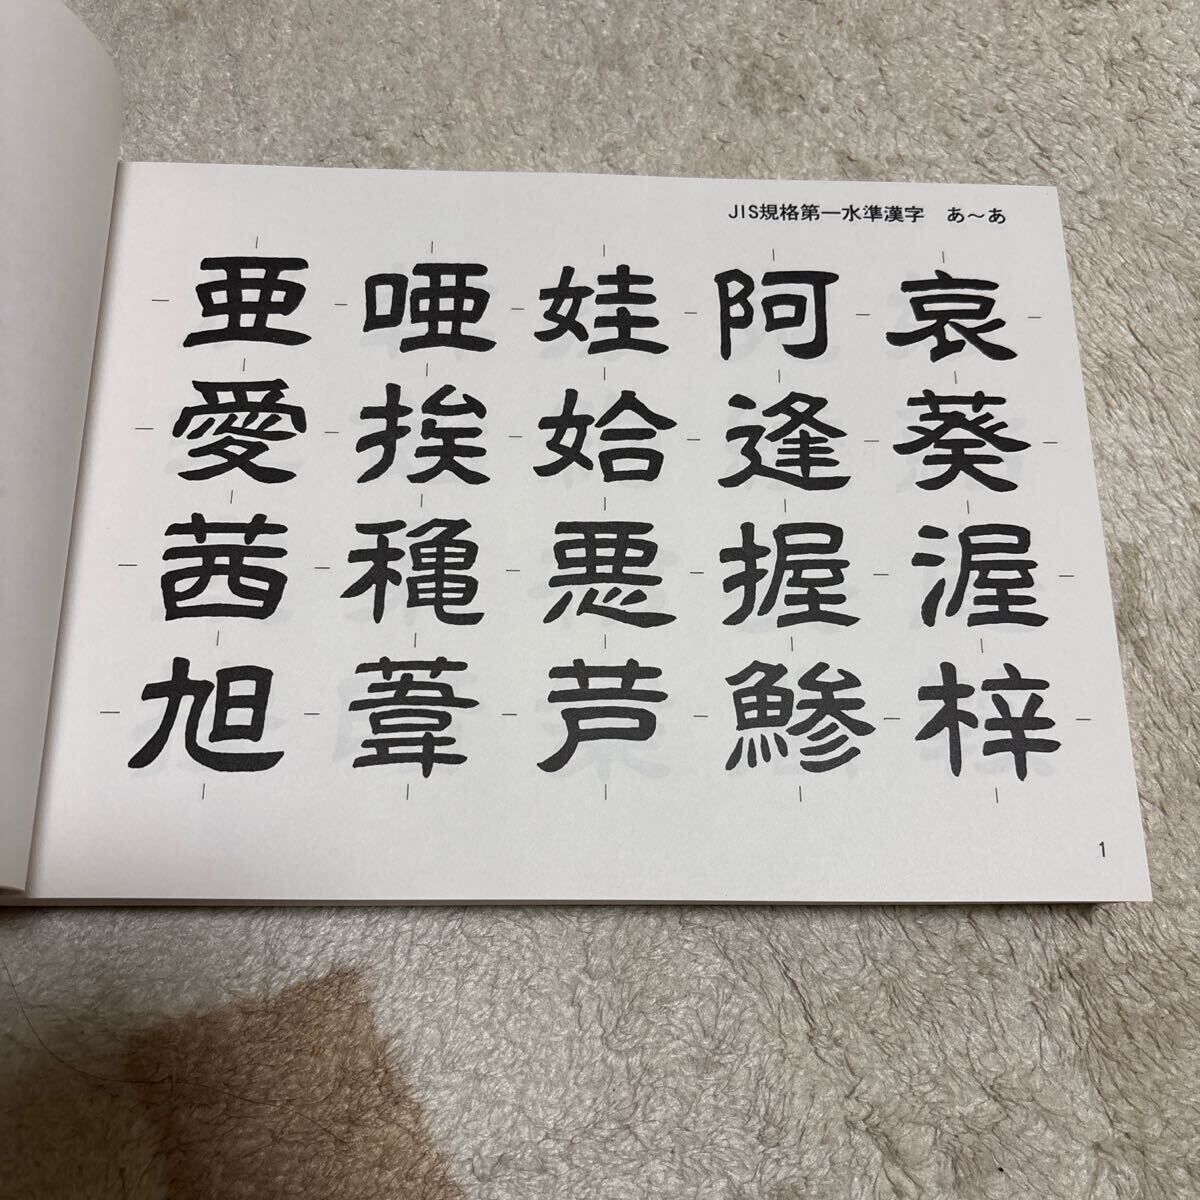 JIS規格第一水準漢字　あ～あ
亜唖娃阿哀
愛挨姶逢葵
茜穐悪握渥
旭葦芦鯵梓
1